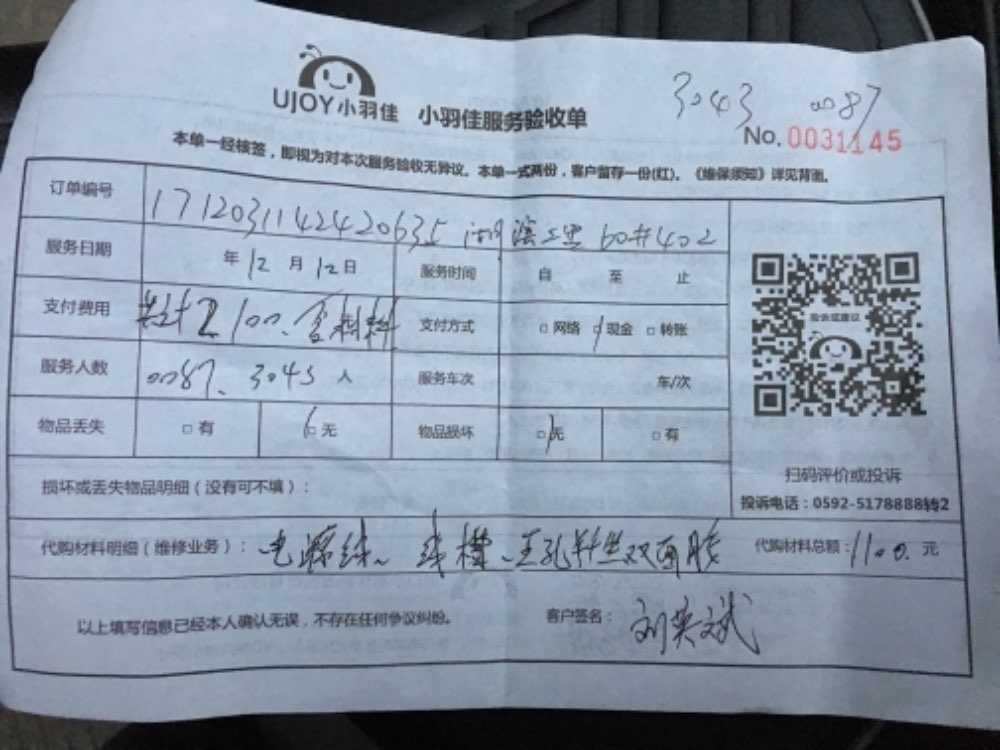 3043 0087
UJOY小羽佳 小羽佳服务验收单
No. 0031145
本单一经核签，即视为对本次服务验收无异议。本单一式两份，客户留存一份(红)。《维保须知》详见背面。
订单编号 1712031142420635 湖滨二里 60#402
服务日期 年 12 月 12 日 服务时间 自 至 止
支付费用 共计 100.含材料 支付方式 □ 网络 □ 现金 □ 转账
投诉或建议
服务人数 0087、3043 人 服务车次 车/次
物品丢失 □ 有 □ 无 物品损坏 □ 无 □ 有
扫码评价或投诉
损坏或丢失物品明细（没有可不填）：
投诉电话：0592-5178888转2
代购材料明细（维修业务）： 电源线、线槽、五孔 双面胶 代购材料总额： 100. 元
以上填写信息已经本人确认无误，不存在任何争议纠纷。 客户签名： 刘英斌